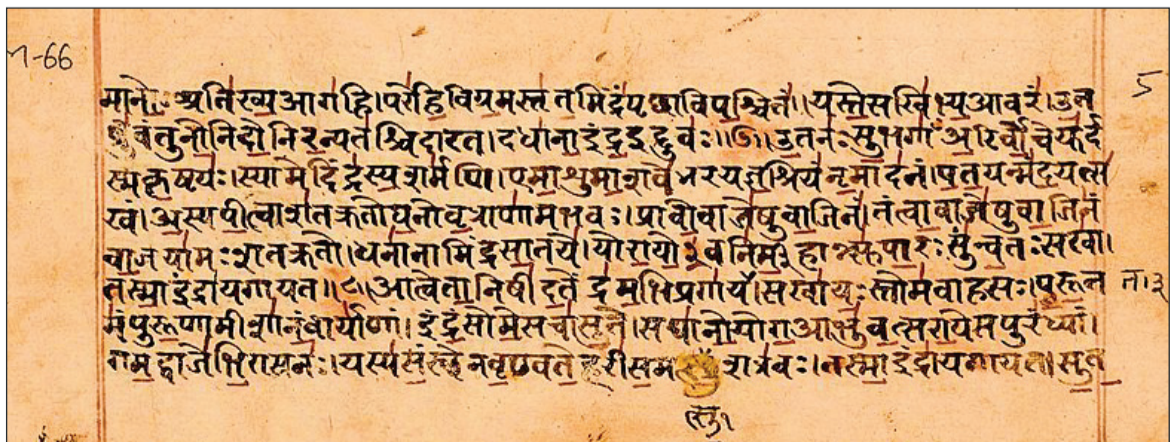 मानोअतिख्यआगहि।परेहिविग्रमस्तृतमिंद्रंपृछाविपश्चितं।।यस्तेसखिभ्यआवरं।उत
ब्रुवंतुनोनिदोनिरन्यतश्चिदारत।दधानाइंद्रइद्दुवः।।७।उतनःसुभगाँअरिर्वोचेयुर्द
स्मकृष्टयः।स्यामेदिंद्रस्यशर्मणि।एमाशुमाशवेभरयज्ञश्रियंनृमादनं।पतयन्मंदयत्स
खं।अस्यपीत्वाशतक्रतोघनोवृत्राणामभवः।प्रावोवाजेषुवाजिनं।तंत्वावाजेषुवाजिनं
वाजयामःशतक्रतो।धनानामिंद्रसातये।योरायो३वनिर्म३हान्त्सुपारःसुन्वतःसखा।
तस्माइंद्रायगायत।।८।आत्वेतानिषीदतेंद्रमभिप्रगायत।सखायःस्तोमवाहसः।पुरूत
मंपुरूणामीशानंवार्याणां।इंद्रंसोमेसचासुते।सघानोयोगआभुवत्सरायेसपुरंध्यां।
गमद्वाजेभिरासनः।यस्यसंस्थेनवृण्वतेहरीसमत्सुशत्रवः।तस्माइंद्रायगायत।सुत
5